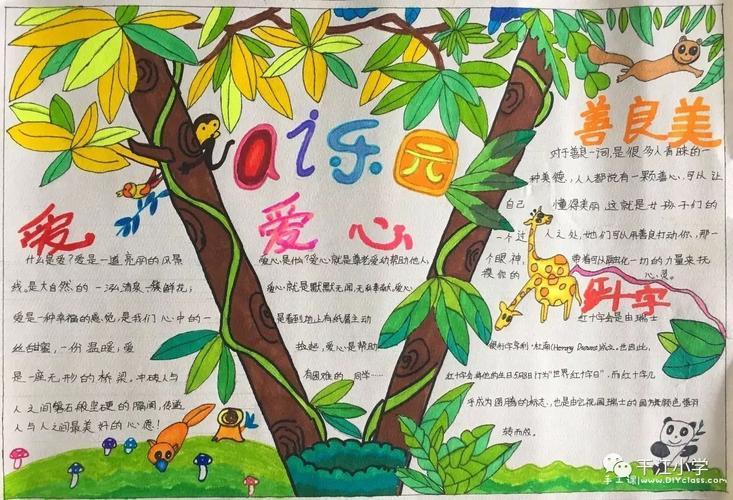 ai乐园
爱
什么是爱？爱是一道亮丽的风景
线。是大自然的一泓清泉、一簇鲜花；
爱是一种幸福的感觉，是我们心中的一
丝甜蜜，一份温暖，爱
是一座无形的桥梁，冲破人与
人之间磐石般坚硬的隔阂，传递
人与人之间最美好的心愿！
爱心
爱心是什么？爱心就是尊老爱幼帮助他人，
爱心就是默默无闻、无私奉献，爱心
是看到地上有纸屑主动
捡起，爱心是帮助
有困难的同学……
善良美
对于善良一词，是很多人看昧的一
种美德，人人都说有一颗善心，可以让
自己懂得美丽，这就是女孩子们的
一个过人之处，他们可以用善良打动你，那一
个眼神，带着可以融化一切的力量来抚
摸你的心灵。
红十字
红十字会是由瑞士
亨利·杜南(Henry Dunant)成立，也因此，
红十字会将他的生日5月8日订为“世界红十字日”，而红十字几
乎成为团购的标志，也是由它祖国瑞士的国旗颜色翻
转而成。
千江小学
手工课|www.DIYclass.com